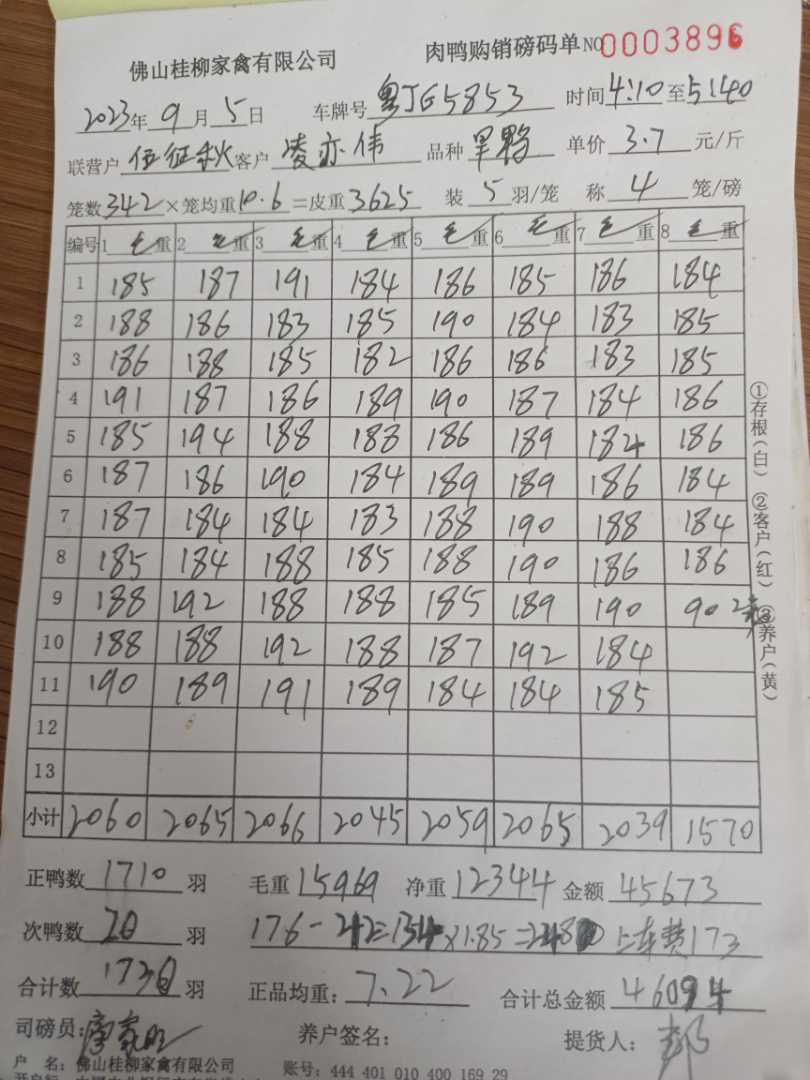 佛山桂柳家禽有限公司 肉鸭购销磅码单 NO 0003896
2023年 9月 5日 车牌号 粤JG5853 时间 4:10 至 5:40
联营户 伍征秋 客户 凌亦伟 品种 旱鸭 单价 3.7 元/斤
笼数 342 ×笼均重 10.6 =皮重 3625 装 5 羽/笼 称 4 笼/磅
编号 1 毛重 2 毛重 3 毛重 4 毛重 5 毛重 6 毛重 7 毛重 8 毛重
1 185 187 191 184 186 185 186 184
2 188 186 183 185 190 184 183 185
3 186 188 185 182 186 186 183 185
4 191 187 186 189 190 187 184 186
5 185 194 188 188 186 189 182 186
6 187 186 190 184 189 189 186 184
7 187 184 184 183 188 190 188 184
8 185 184 188 185 188 190 186 186
9 188 192 188 188 185 189 190 90 2
10 188 188 192 188 187 192 184
11 190 189 191 189 184 184 185
12
13
小计 2060 2065 2066 2045 2059 2065 2039 1570
①存根(白) ②客户(红) ③养户(黄)
正鸭数 1710 羽 毛重 15969 净重 12344 金额 45673
次鸭数 20 羽 176-42=134×1.85=248 上车费173
合计数 1730 羽 正品均重: 7.22 合计总金额 46094
司磅员: 养户签名: 提货人:
户 名: 佛山桂柳家禽有限公司 账号: 444 401 010 400 169 29